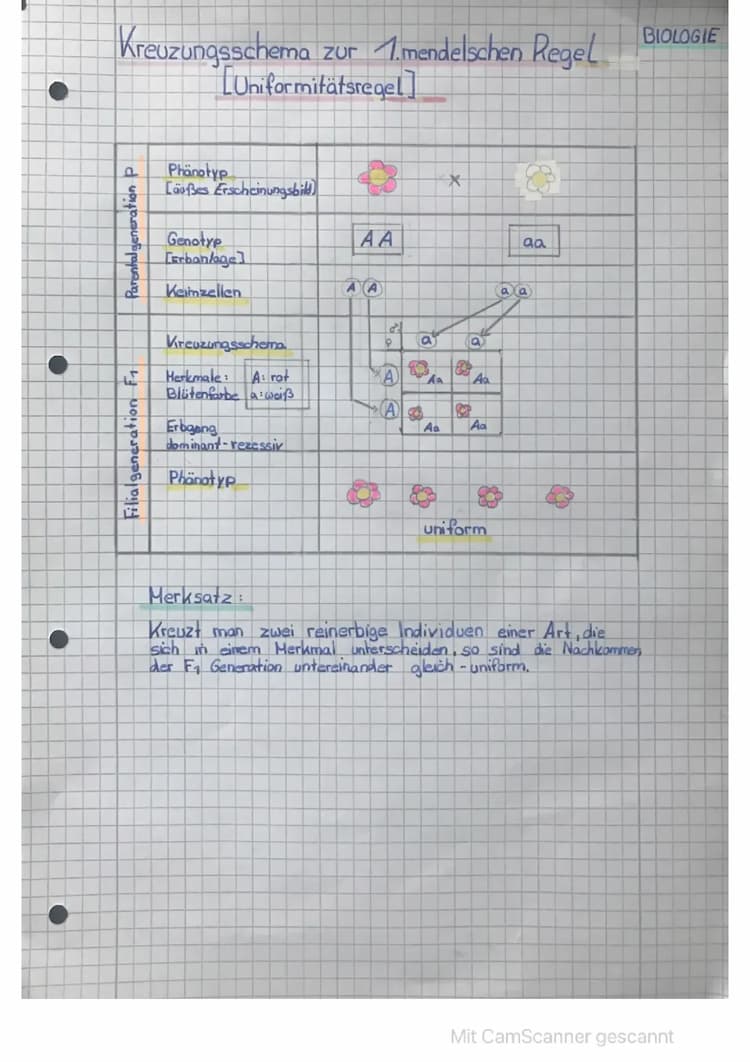 BIOLOGIE
Kreuzungsschema zur 1. mendelschen Regel
[Uniformitätsregel]
Parentalgeneration P
Phänotyp
[äußes Erscheinungsbild]
x
Genotyp
[Erbanlage]
AA
aa
Keimzellen
A A
a a
Filialgeneration F1
Kreuzungsschema
♂
♀
a a
Merkmale: A: rot
Blütenfarbe a: weiß
A Aa Aa
A Aa Aa
Erbgang
dominant-rezessiv
Phänotyp
uniform
Merksatz:
Kreuzt man zwei reinerbige Individuen einer Art, die
sich in einem Merkmal unterscheiden, so sind die Nachkommen
der F1 Generation untereinander gleich - uniform.
Mit CamScanner gescannt